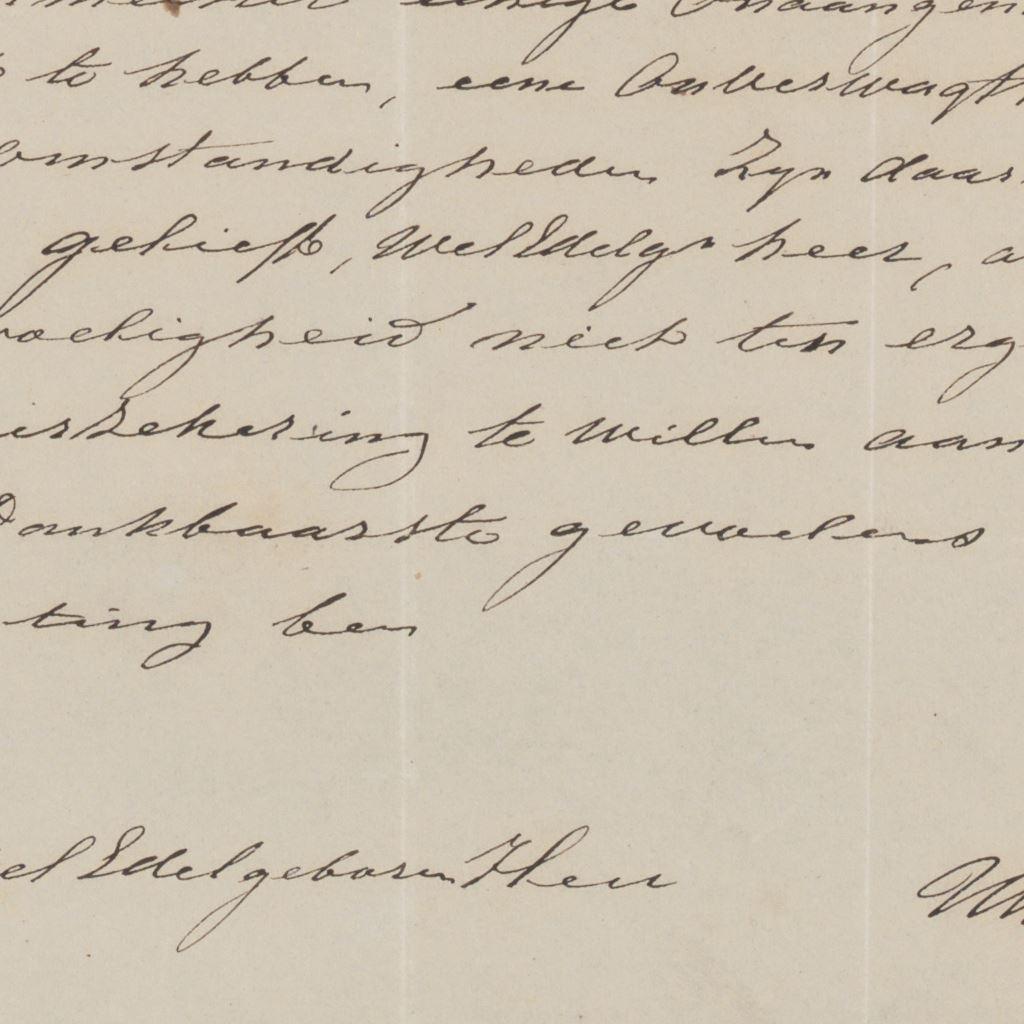 eenige onaangen
te hebben, eene onverwagt
omstandigheden Zyn daar
gelieft, WelEdelgn heer, a
voeligheid niet ten erg
erzekering te willen aan
Dankbaarste gevoelens
ting ben
el Edelgeboren Heer